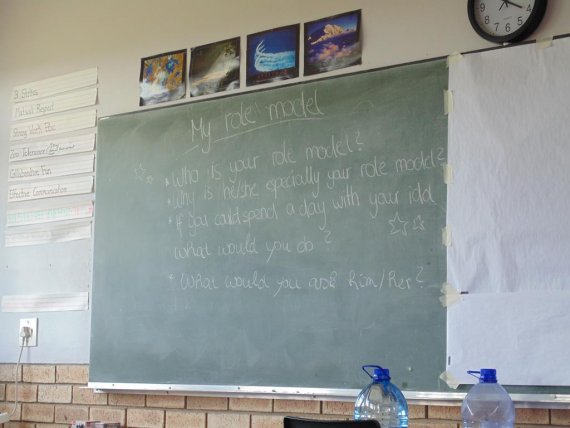 Mutual Respect
Strong Work Ethic
Zero Tolerance
Collaborative Fun
Effective Communication
My role model
* Who is your role model?
* Why is he/she especially your role model?
* If you could spend a day with your idol
what would you do?
* What would you ask him/her?